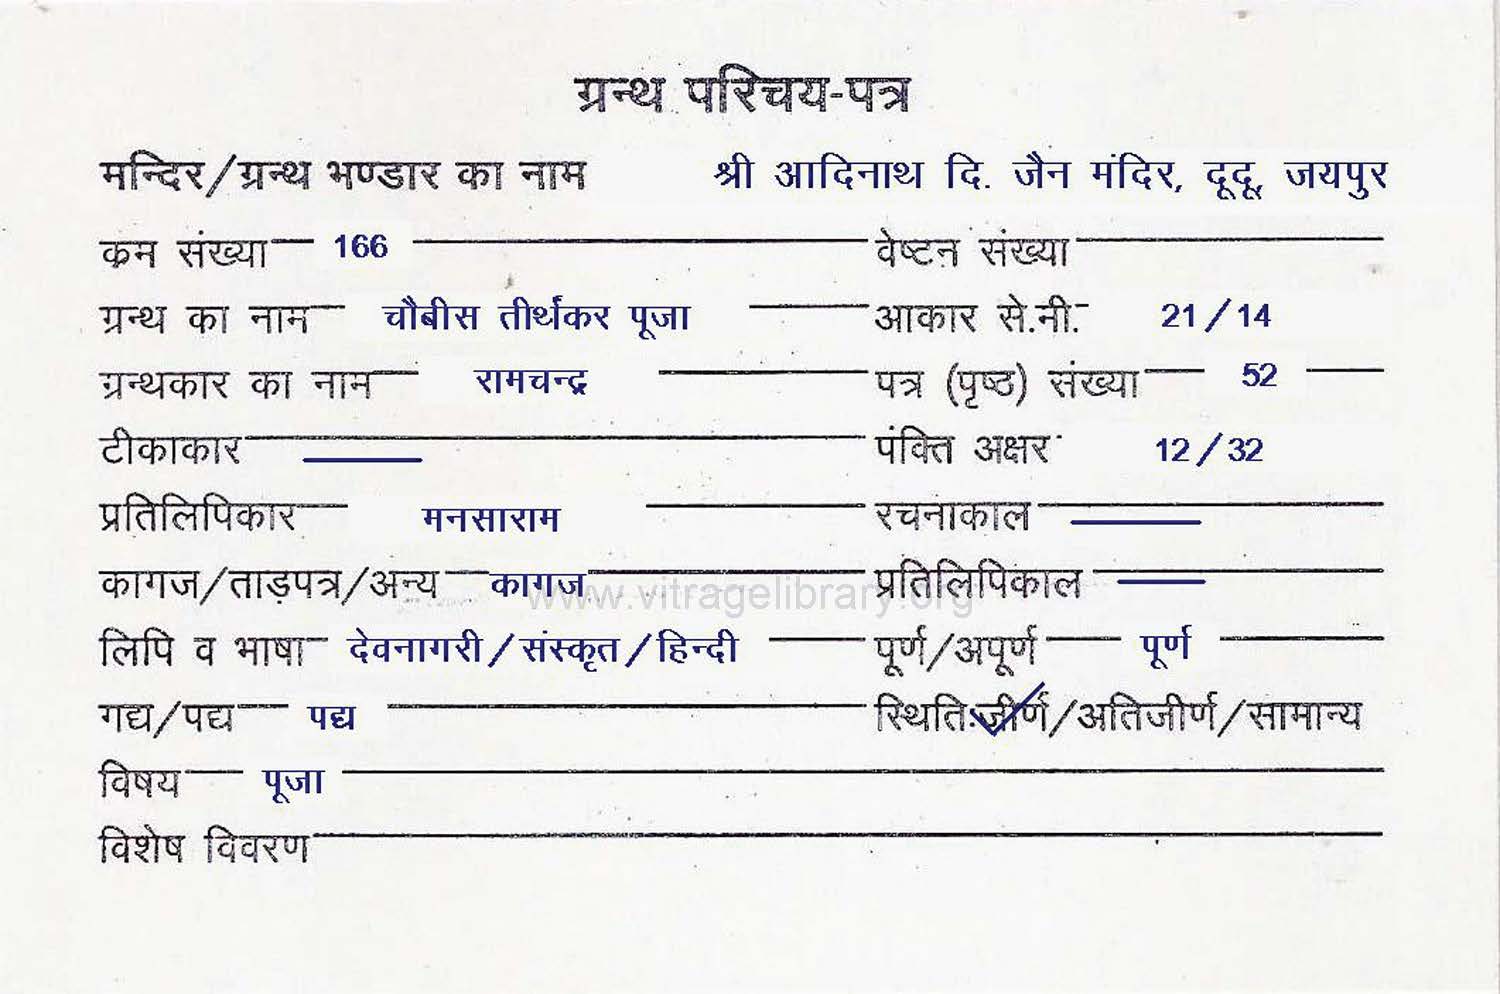 ग्रन्थ परिचय-पत्र
मन्दिर/ग्रन्थ भण्डार का नाम श्री आदिनाथ दि. जैन मंदिर, दूदू, जयपुर
क्रम संख्या 166 वेष्टन संख्या
ग्रन्थ का नाम चौबीस तीर्थंकर पूजा आकार से.मी. 21/14
ग्रन्थकार का नाम रामचन्द्र पत्र (पृष्ठ) संख्या 52
टीकाकार — पंक्ति अक्षर 12/32
प्रतिलिपिकार मनसाराम रचनाकाल —
कागज/ताड़पत्र/अन्य कागज प्रतिलिपिकाल —
www.vitragelibrary.org
लिपि व भाषा देवनागरी/संस्कृत/हिन्दी पूर्ण/अपूर्ण पूर्ण
गद्य/पद्य पद्य स्थिति: जीर्ण/अतिजीर्ण/सामान्य
विषय पूजा
विशेष विवरण